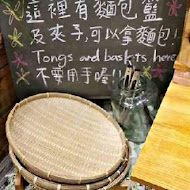 這裡有麵包籃
及夾子,可以拿麵包!
Tongs and baskits here
不要用手喔!!